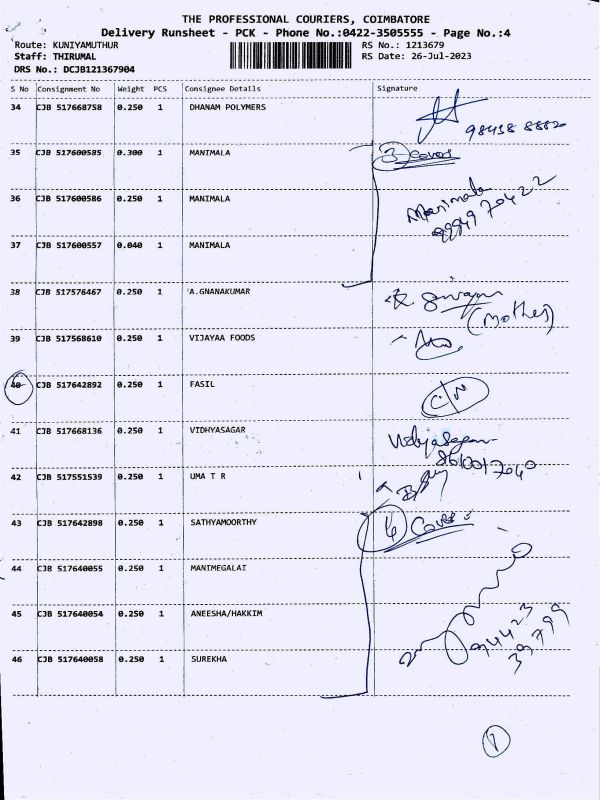 THE PROFESSIONAL COURIERS, COIMBATORE
Delivery Runsheet - PCK - Phone No.:0422-3505555 - Page No.:4
Route: KUNIYAMUTHUR RS No.: 1213679
Staff: THIRUMAL RS Date: 26-Jul-2023
DRS No.: DCJB121367904
S No Consignment No Weight PCS Consignee Details Signature
34 CJB 517668758 0.250 1 DHANAM POLYMERS
98438 8882
35 CJB 517600585 0.300 1 MANIMALA 3 Cover
36 CJB 517600586 0.250 1 MANIMALA
Manimala
9994970422
37 CJB 517600557 0.040 1 MANIMALA
38 CJB 517576467 0.250 1 A.GNANAKUMAR
(Mother)
39 CJB 517568610 0.250 1 VIJAYAA FOODS
40 CJB 517642892 0.250 1 FASIL
41 CJB 517668136 0.250 1 VIDHYASAGAR Vidyasagar
42 CJB 517551539 0.250 1 UMA T R
43 CJB 517642898 0.250 1 SATHYAMOORTHY 4 Cover
44 CJB 517640055 0.250 1 MANIMEGALAI
45 CJB 517640054 0.250 1 ANEESHA/HAKKIM
94423
39799
46 CJB 517640058 0.250 1 SUREKHA